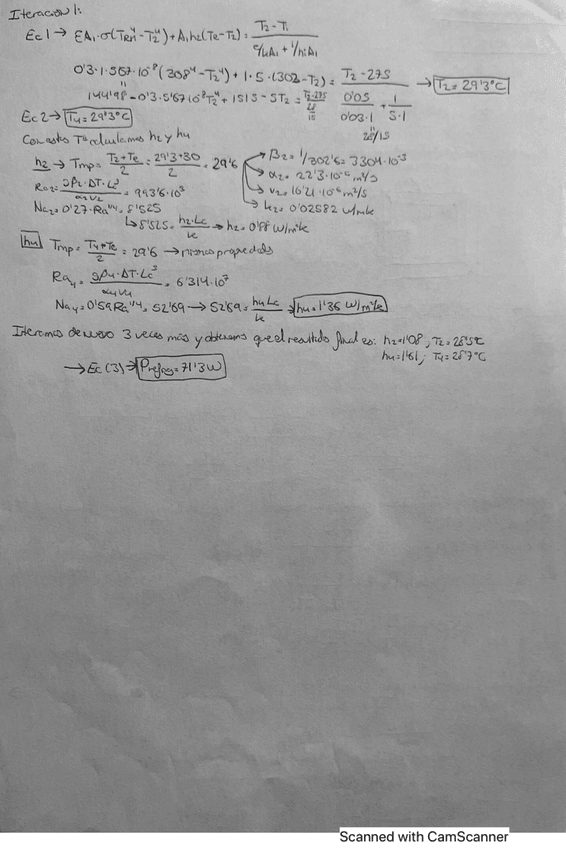 Iteracion 1:
Ec 1 → εA₁·σ(TRM⁴-T₂⁴)+A₁h₂(Te-T₂) = (T₂-T₁)/(e/kA₁ + 1/h₁A₁)
0'3·1·5'67·10⁻⁸(308⁴-T₂⁴) + 1·5·(303-T₂) = (T₂-275)/(0'05/(0'03·1) + 1/(5·1)) → T₂ = 29'3ºC
144'98-0'3·5'67·10⁻⁸T₂⁴ + 1515-5T₂ = (T₂-275)/(28/15)
28/15
Ec 2 → T₄ = 29'3ºC
Con estos Tª calculamos h₂ y h₄
h₂ → Tmp = (T₂+Te)/2 = (29'3+30)/2 = 29'6
β₂ = 1/302'6 = 3'304·10⁻³
α₂ = 22'3·10⁻⁶ m²/s
ν₂ = 16'21·10⁻⁶ m²/s
k₂ = 0'02582 W/mk
Ra₂ = gβ₂·ΔT·Lc³/α₂ν₂ = 9'936·10⁵
Nu₂ = 0'27·Ra^1/4 = 8'525
↳ 8'525 = h₂·Lc/k → h₂ = 0'88 W/m²k
h₄ Tmp = (T₄+Te)/2 = 29'6 → mismas propiedades
Ra₄ = gβ₄·ΔT·Lc³/α₄ν₄ = 6'314·10⁷
Nu₄ = 0'59Ra^1/4 = 52'69 → 52'69 = h₄Lc/k → h₄ = 1'36 W/m²k
Iteramos de nuevo 3 veces más y obtenemos que el resultado final es: h₂ = 1'08, T₂ = 28'5ºC
h₄ = 1'61; T₄ = 28'7ºC
→ Ec (3) → Prefrig = 71'3 W
Scanned with CamScanner